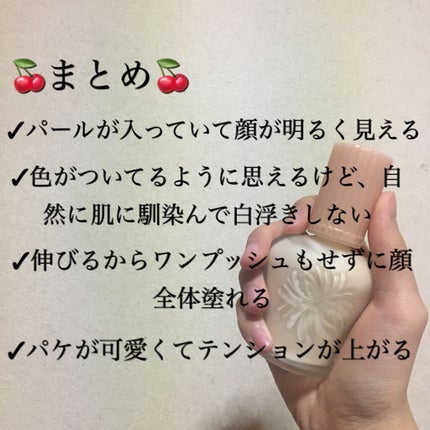 🍒まとめ🍒
✓パールが入っていて顔が明るく見える
✓色がついてるように思えるけど、自
然に肌に馴染んで白浮きしない
✓伸びるからワンプッシュもせずに顔
全体塗れる
✓パケが可愛くてテンションが上がる